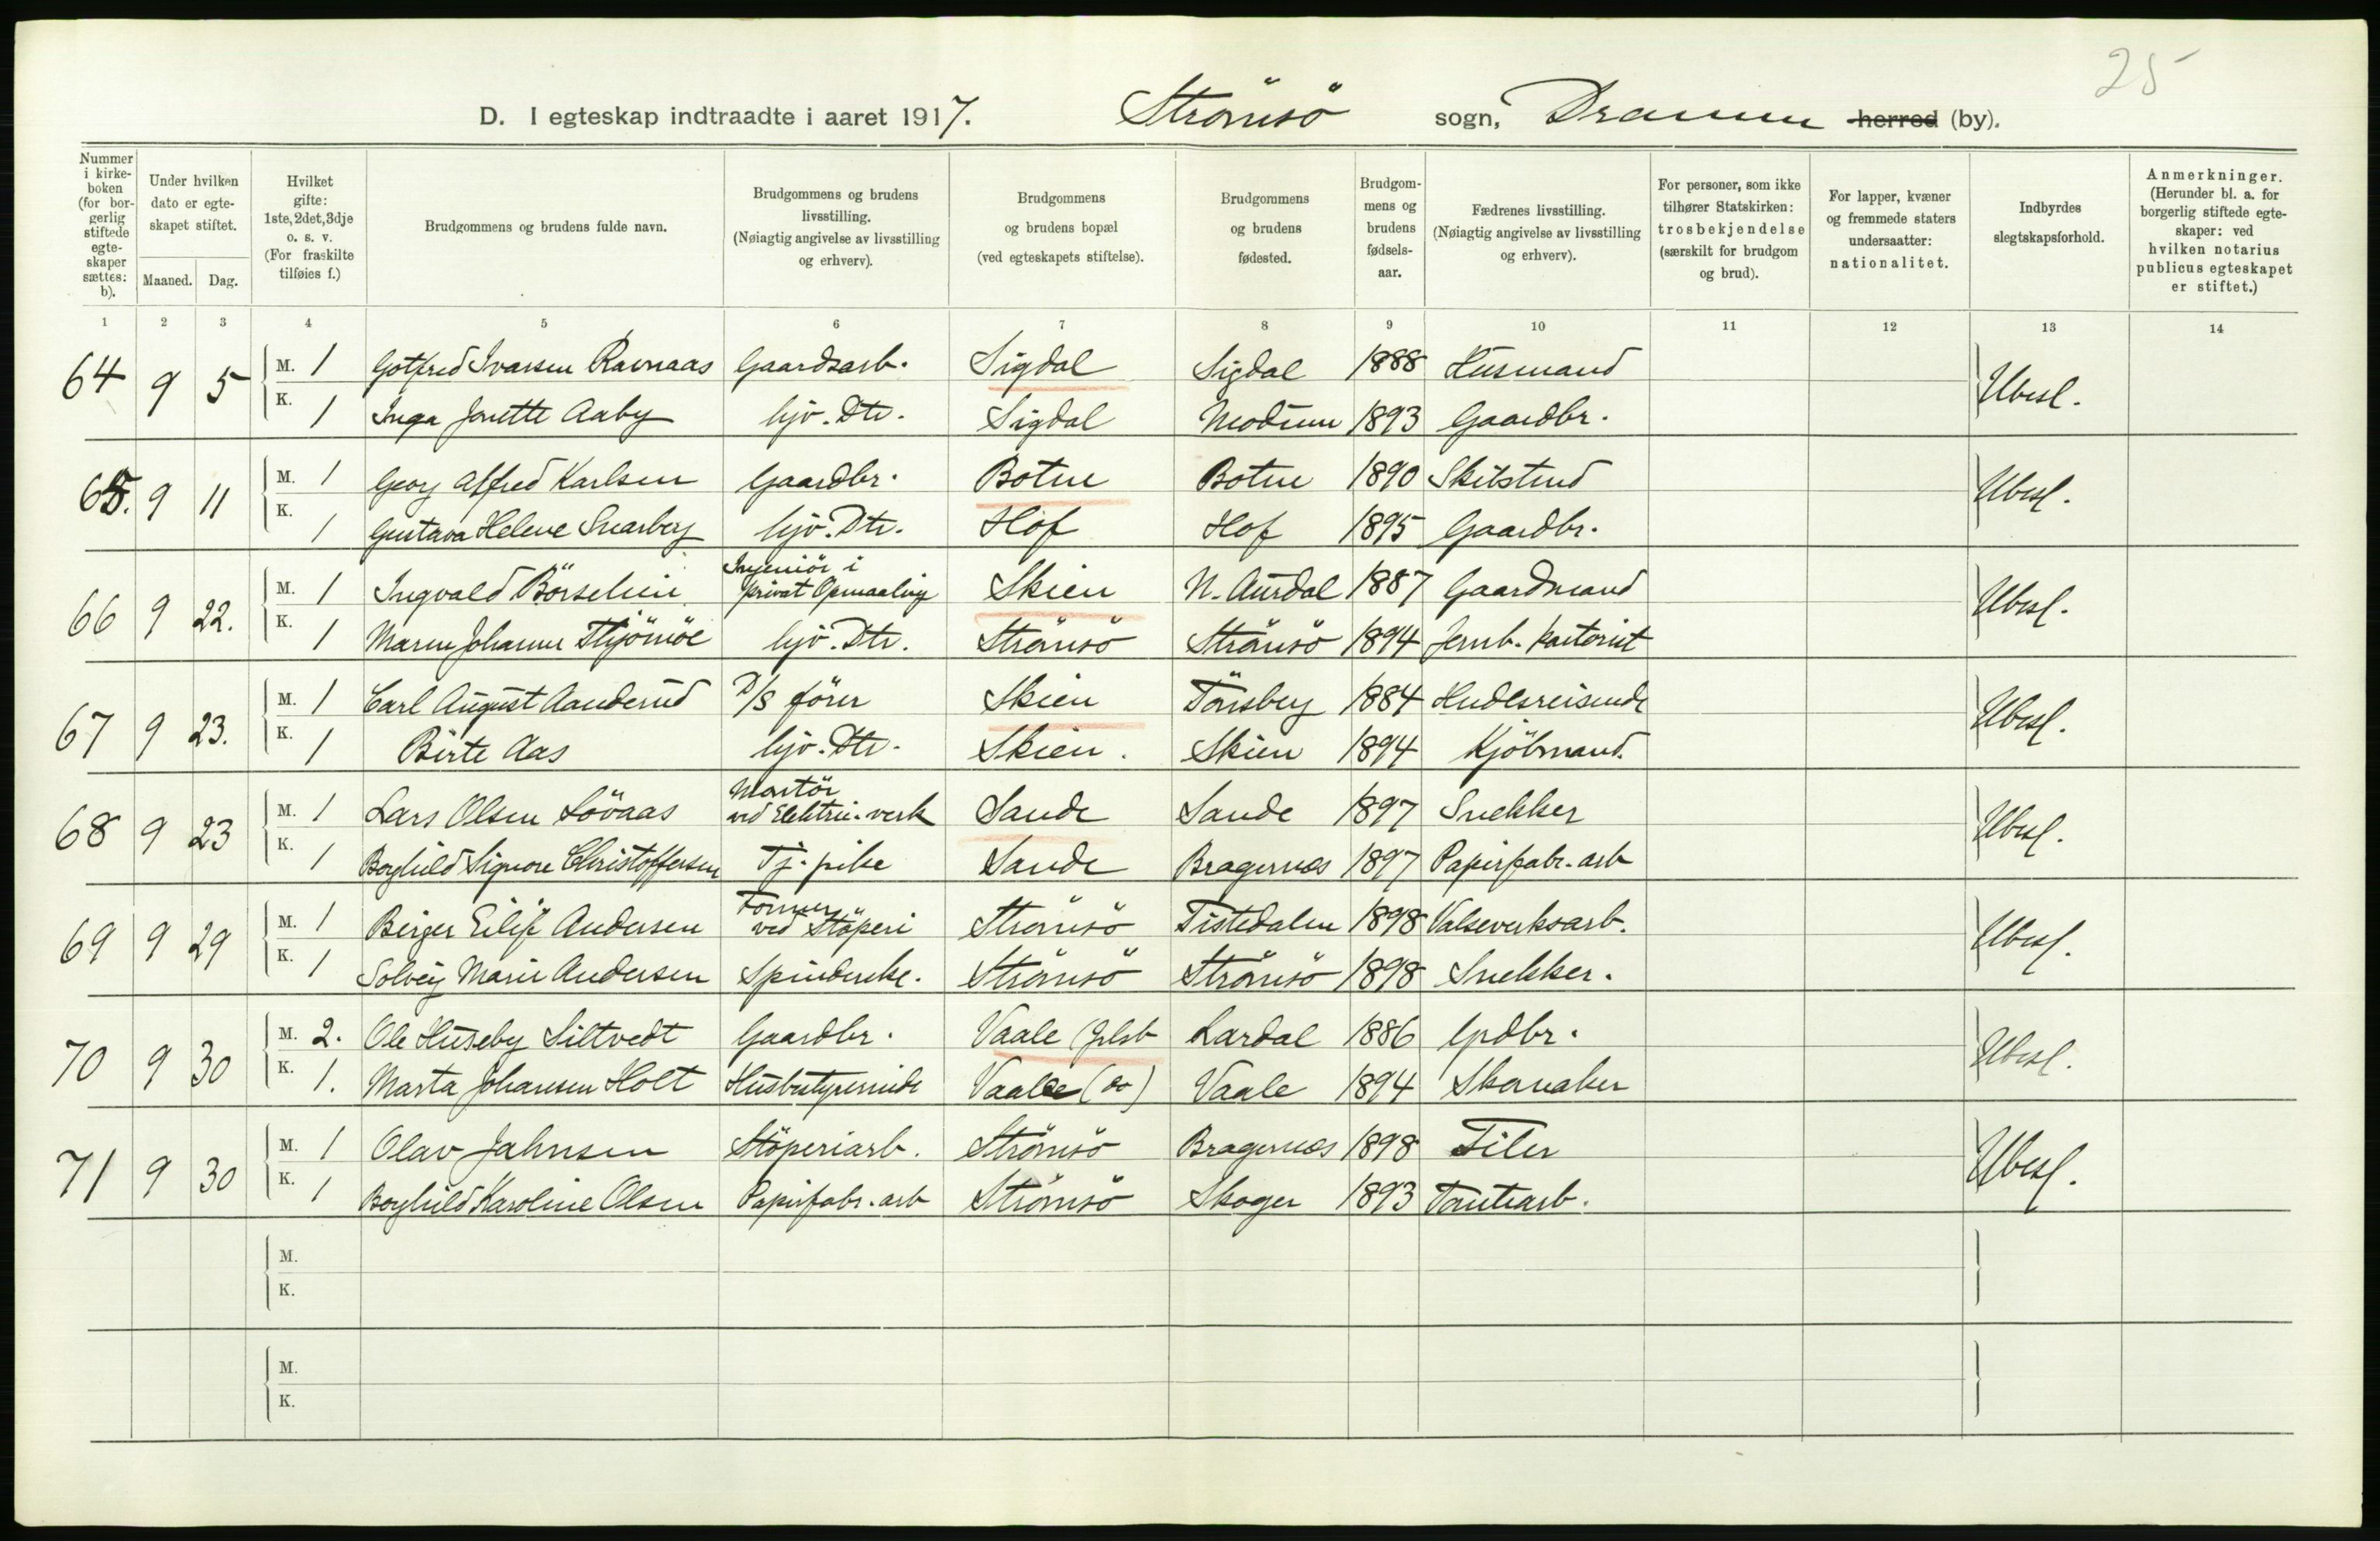 25
D. I egteskap indtraadte i aaret 1917. Strömsö sogn, Drammen herred (by).
Nummer i kirke-boken (for bor-gerlig stiftede egte-skaper sættes: b).
Under hvilken dato er egte-skapet stiftet.
Maaned. Dag.
Hvilket gifte: 1ste, 2det, 3dje o. s. v. (For fraskilte tilføies f.)
Brudgommens og brudens fulde navn.
Brudgommens og brudens livsstilling. (Nøiagtig angivelse av livsstilling og erhverv).
Brudgommens og brudens bopæl (ved egteskapets stiftelse).
Brudgommens og brudens fødested.
Brudgom-mens og brudens fødsels-aar.
Fædrenes livsstilling. (Nøiagtig angivelse av livsstilling og erhverv).
For personer, som ikke tilhører Statskirken: trosbekjendelse (særskilt for brudgom og brud).
For lapper, kvæner og fremmede staters undersaatter: nationalitet.
Indbyrdes slegtskapsforhold.
Anmerkninger. (Herunder bl. a. for borgerlig stiftede egte-skaper: ved hvilken notarius publicus egteskapet er stiftet.)
1 2 3 4 5 6 7 8 9 10 11 12 13 14
64 9 5 M. 1 Gotfred Ivarsen Ravnaas Gaardsarb. Sigdal Sigdal 1888 Husmand Ubesl.
K. 1 Inga Jonette Aaby hjv. Dtr. Sigdal Modum 1893 Gaardbr.
65. 9 11 M. 1 Georg Alfred Karlsen Gaardbr. Botne Botne 1890 Skibstmd Ubesl.
K. 1 Gustava Helene Snarberg hjv. Dtr. Hof Hof 1895 Gaardbr.
66 9 22. M. 1 Ingvald Börslien Ingeniör i privat Opmaaling Skien N. Aurdal 1887 Gaardmand Ubesl.
K. 1 Maren Johanne Thjömöe hjv. Dtr. Strömsö Strömsö 1894 Jernb. kontorist
67 9 23. M. 1 Carl August Aanderud D/S förer Skien Tönsberg 1884 Hndlsreisende Ubesl.
K. 1 Birte Aas hjv. Dtr. Skien. Skien 1894 Kjöbmand.
68 9 23 M. 1 Lars Olsen Lövaas Montör ved Elektric. verk Sande Sande 1897 Snekker Ubesl.
K. 1 Borghild Signore Christoffersen Tj. pike Sande Bragernæs 1897 Papirfabr. arb
69 9 29 M. 1 Birger Eilif Andersen Former ved Stöperi Strömsö Tistedalen 1898 Valseverksarb. Ubesl.
K. 1 Solveig Marie Andersen Spinderske. Strömsö Strömsö 1898 Snekker.
70 9 30 M. 2. Ole Huseby Siltvedt Gaardbr. Vaale (Jrlsb Lardal 1886 Grdbr. Ubesl.
K. 1. Marta Johansen Holt Husbestyrerinde Vaale (do) Vaale 1894 Skomaker
71 9 30 M. 1 Olav Jahnsen Stöperiarb. Strömsö Bragernæs 1898 Filer Ubesl.
K. 1 Borghild Karoline Olsen Papirfabr. arb Strömsö Skoger 1893 Tomtearb.
M.
K.
M.
K.